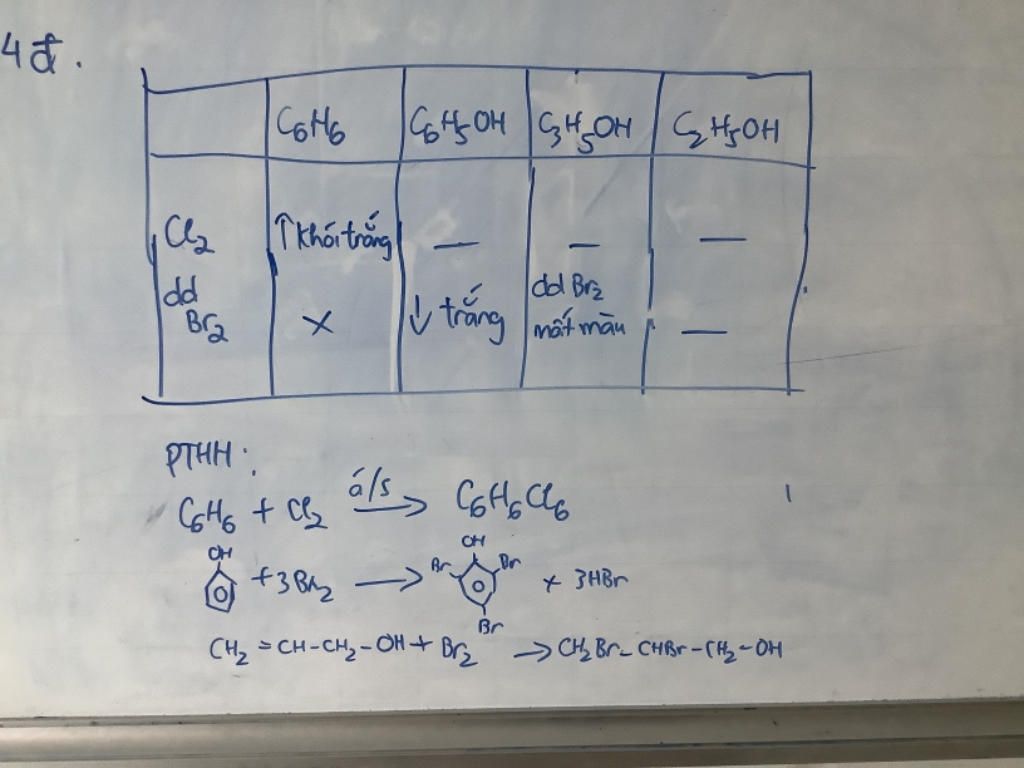 4đ.
C6H6 C6H5OH C3H5OH C2H5OH
Cl2 ↑ khói trắng — — —
dd Br2 × ↓ trắng dd Br2 mất màu —
PTHH:
C6H6 + Cl2 á/s → C6H6Cl6
OH + 3Br2 → OH Br Br Br + 3HBr
CH2 = CH-CH2-OH + Br2 → CH2Br-CHBr-CH2-OH